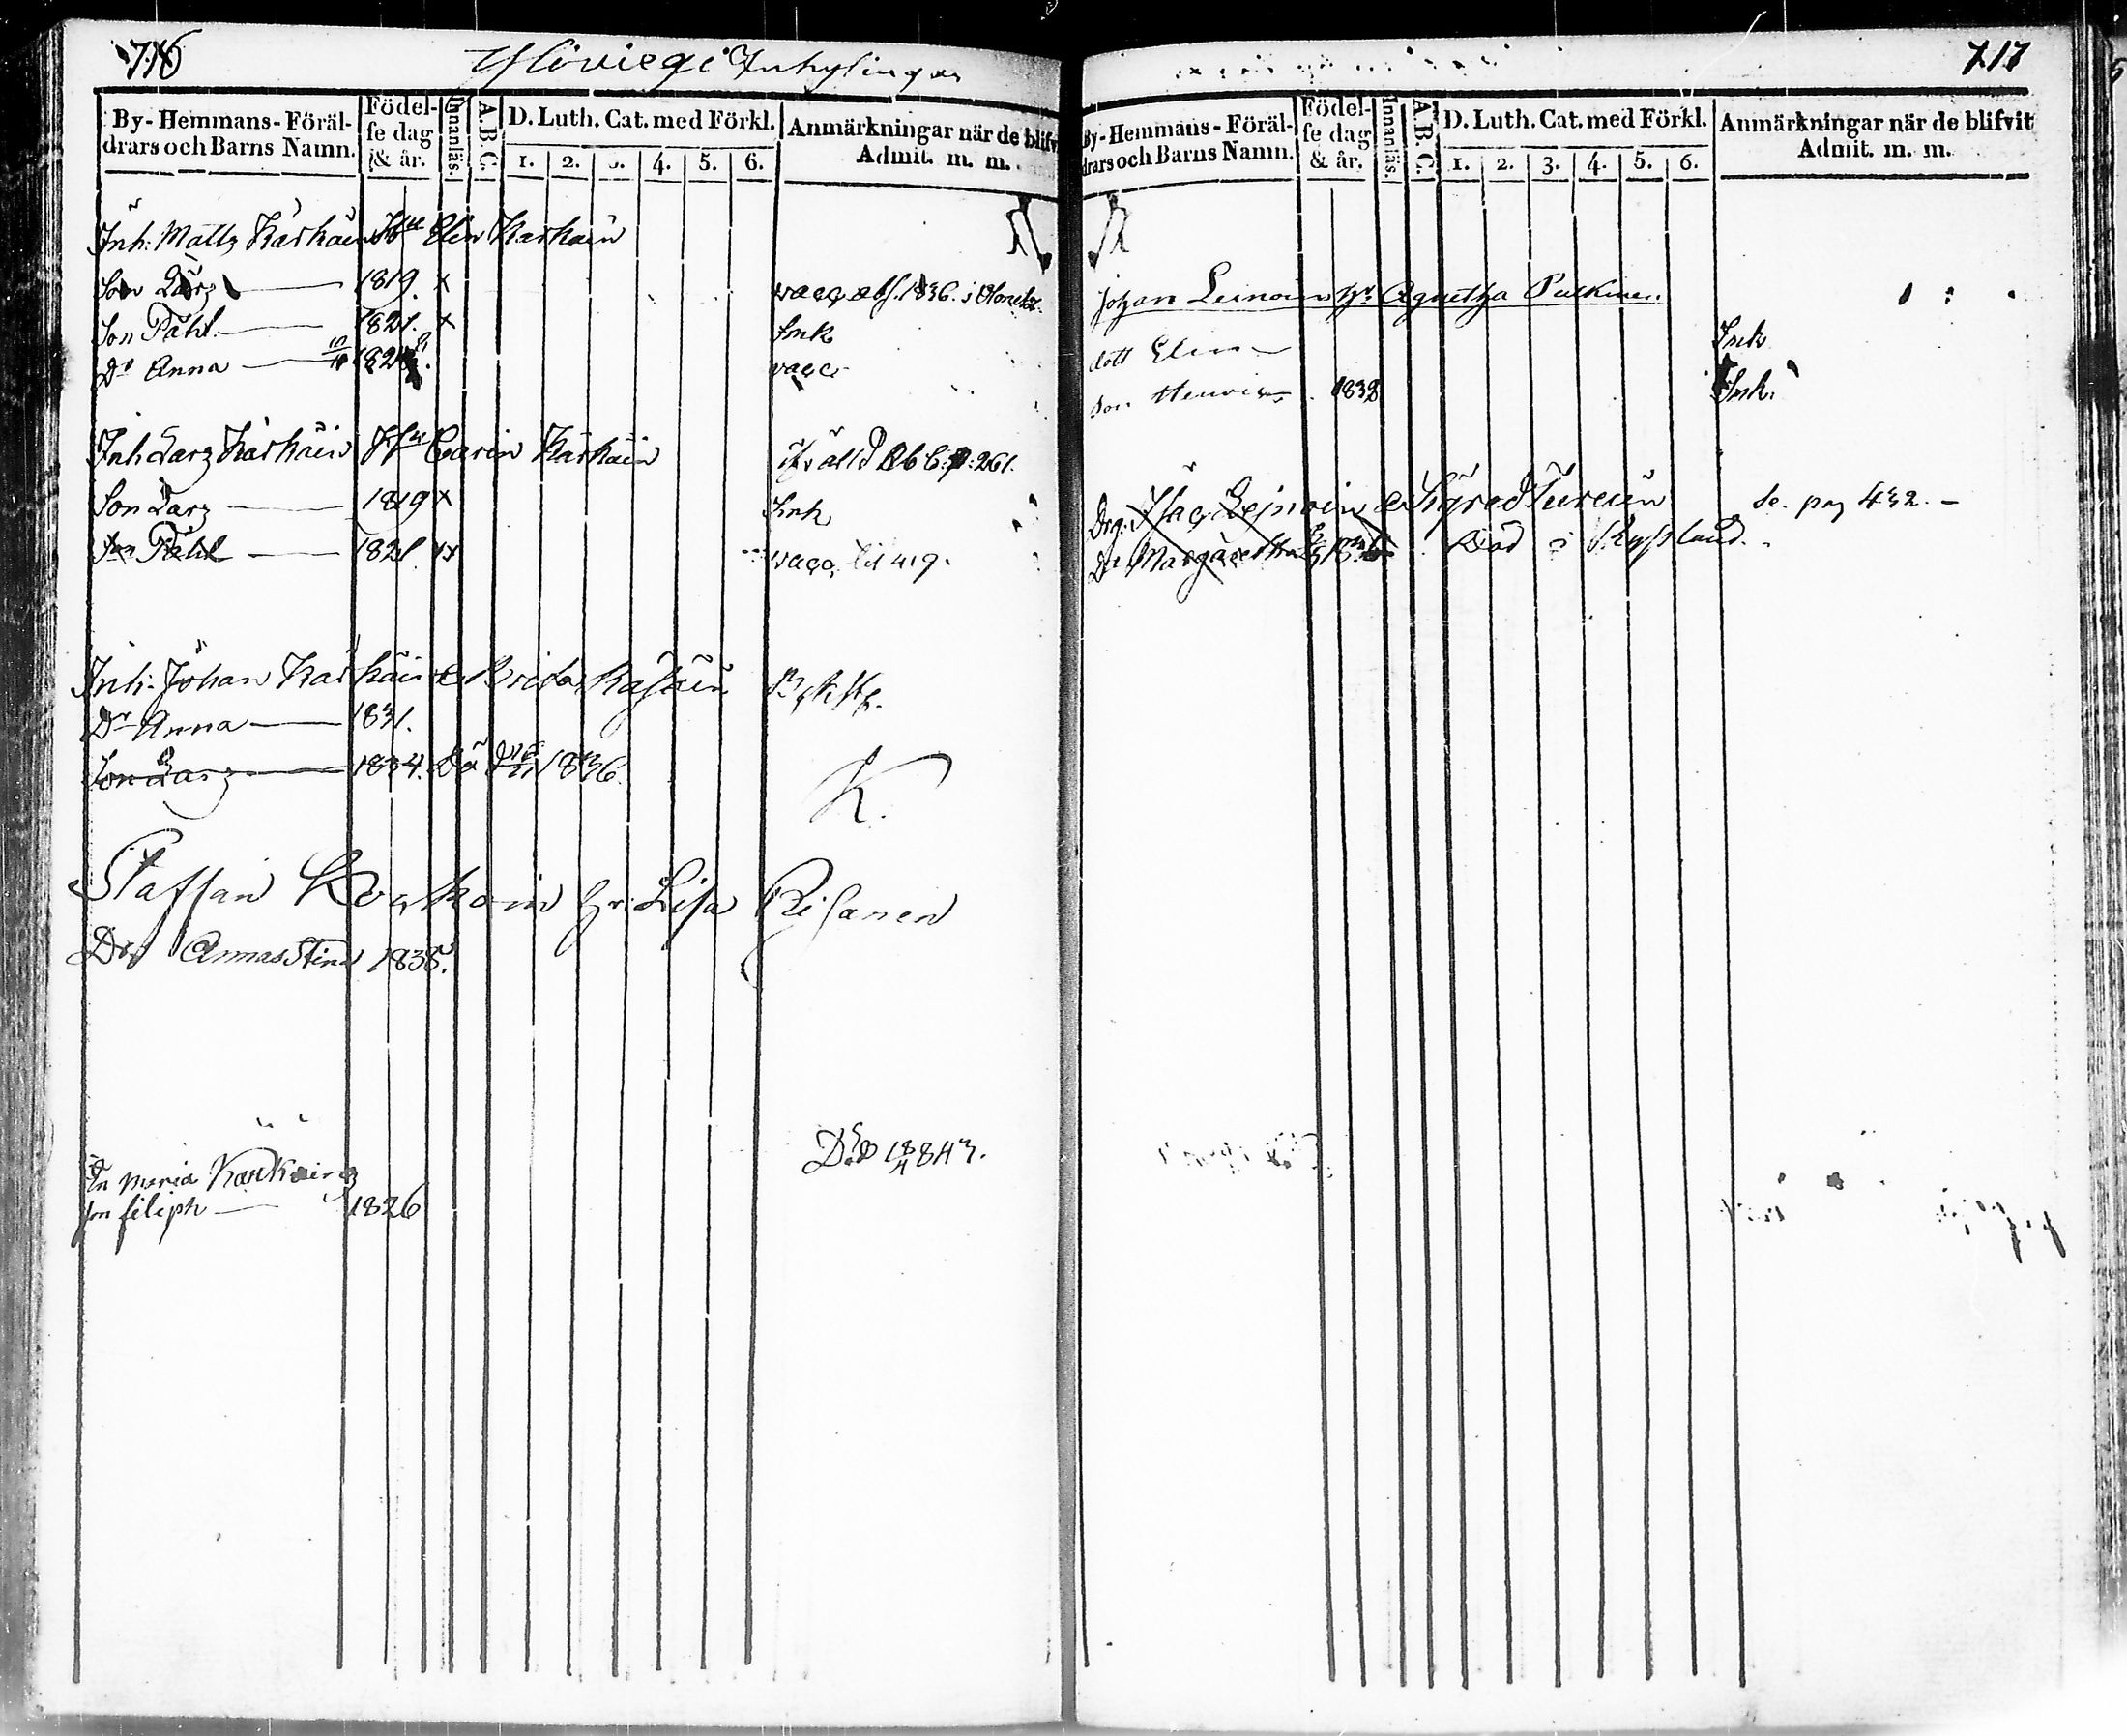 716
Inhysingar
By-Hemmans-Föräl-
drars och Barns Namn.
Födel-
se dag
& år.
Innanläs.
A.B.C.
D. Luth. Cat. med Förkl.
1. 2. 3. 4. 5. 6.
Anmärkningar när de blifvit
Admit. m. m.
Inh: Matts Karhain Hu Elin Karhain
Son Larz 1819. x vacc abs. 1836. i
Son Påhl 1821. x Ink
Dr Anna vacc
Inh Larz Karhain Hu Carin Karhain p: 261.
Son Larz 1819 x Ink
Son Påhl 1821. xx vacc, till 419.
Inh: Johan Karhain & Brita
Dr Anna 1831.
Son Larz 1834. Död 1836.
K.
Staffan hr: Lisa Rissanen
Dr Anna Stina 1838.
Död 1843.
Maria
son filiph 1826
717
By-Hemmans-Föräl-
drars och Barns Namn.
Födel-
se dag
& år.
Innanläs.
A.B.C.
D. Luth. Cat. med Förkl.
1. 2. 3. 4. 5. 6.
Anmärkningar när de blifvit
Admit. m. m.
Johan Leinoin hr Agnetha Pulkinen
dott Elin Ink
son 1832 Ink.
Drg: Isac & Sigred se. pag 432.
Dr Margaretha Död i Ryssland.